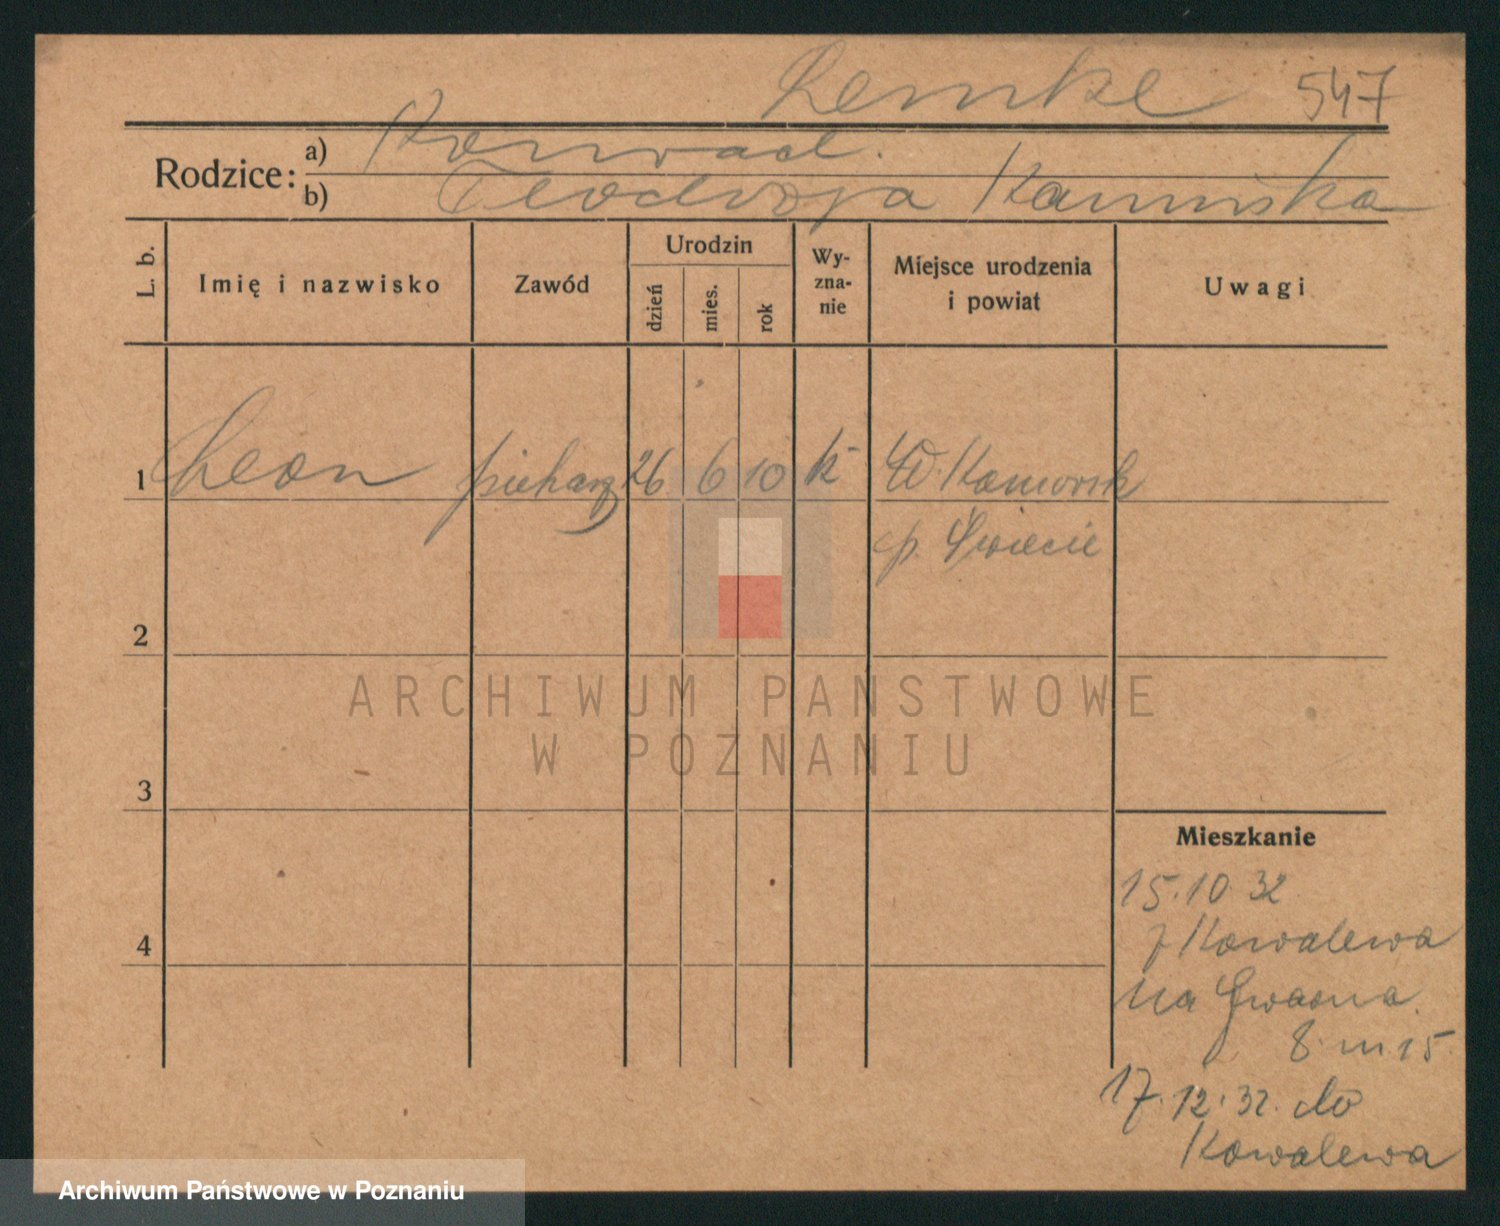 Lemke 547
Rodzice: a) Konrad.
b) Teodozja Kamińska
L. b.
Imię i nazwisko
Zawód
Urodzin
dzień
mies.
rok
Wy-
zna-
nie
Miejsce urodzenia
i powiat
Uwagi
1 Leon piekarz 26 6 10 k W. Komorsk
p. Świecie
2
3
4
Mieszkanie
15.10 32
z Kowalewa
na
8. m. 15.
17.12.32. do
Kowalewa
ARCHIWUM PAŃSTWOWE
W POZNANIU
Archiwum Państwowe w Poznaniu